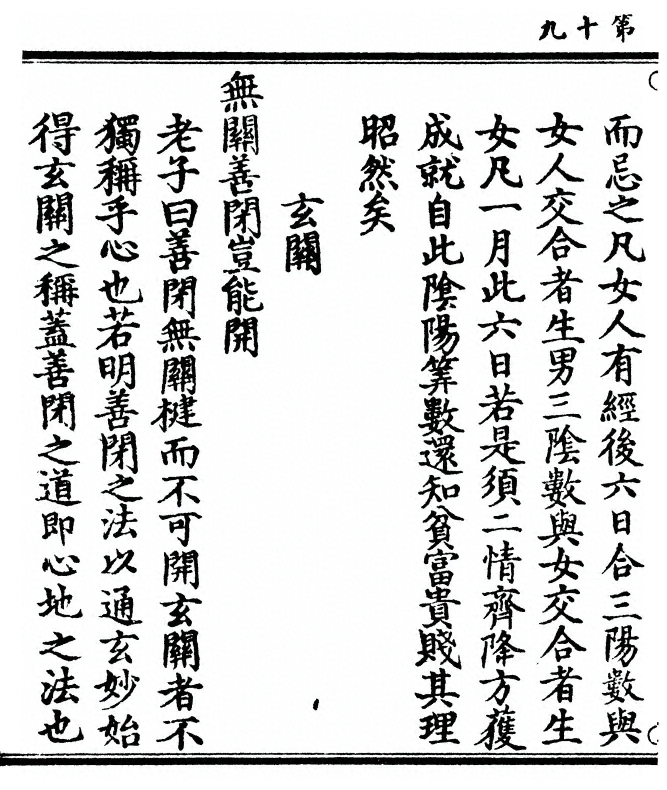 第十九
而忌之凡女人有經後六日合三陽數與
女人交合者生男三陰數與女交合者生
女凡一月此六日若是須二情齊降方獲
成就自此陰陽筭數還知貧富貴賤其理
昭然矣
玄關
無關善閉豈能開
老子曰善閉無關楗而不可開玄關者不
獨稱乎心也若明善閉之法以通玄妙始
得玄關之稱蓋善閉之道即心地之法也